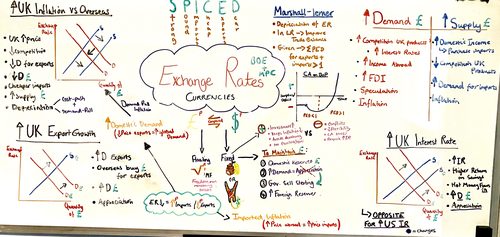 ↑UK Inflation vs Overseas
Exchange Rate
S
S₁
D
D₁
Quantity of £
• UK ↑price
• ↓Competition
• ↓D for exports
• ↓D £
• Cheaper imports
• ↑Supply £
• Depreciation
Cost-push
Demand-Pull
SPICED
Strong
Pound
Imports
Cheap
Exports
Dear
Exchange Rates
CURRENCIES
BOE
MPC
£
$
Marshall-Lerner
• Depreciation of ER
• In LR → Improve Trade Balance
• Given → ΣPED for exports + imports > 1
CA on BoP
PED<1
PED>1
↑Demand £
• ↑ Competition UK products
• ↑ Interest Rates
• ↑ Income Abroad
• ↑ FDI
• Speculation
• Inflation
↑Supply £
• ↑Domestic Income → Purchase imports
• ↓Competition UK Products
• ↑Demand for imports
• Inflation
↑UK Export Growth
Exchange Rate
S
D
D₁
Quantity of £
• ↑D exports
• Overseas buy £ for exports
• ↑D £
• Appreciation
↑Domestic Demand
Demand Pull Inflation
Floating
IMF
Fixed
OR
To Maintain £
① Domestic Reserves £
② ↑Demand = Appreciation
③ Gov. Sell Sterling
④ ↑Foreign Reserves
ER↓ = ↑Imports / ↑Exports
Imported Inflation
↑UK Interest Rate
Exchange Rate
S
D
D₁
Quantity of £
• ↑IR
• Higher Return on Savings
• Hot Money Flows
• ↑D £
• Appreciation
↳ OPPOSITE FOR ↑US IR
= changes